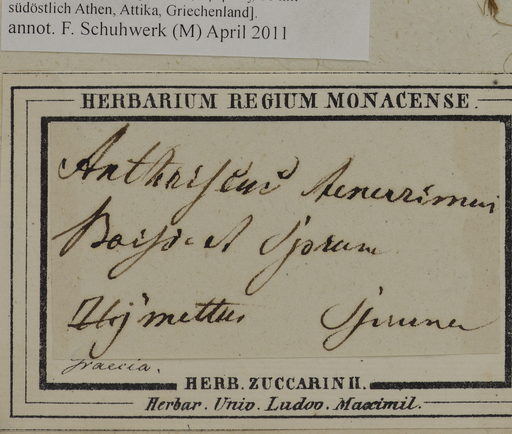 südöstlich Athen, Attika, Griechenland].
annot. F. Schuhwerk (M) April 2011
HERBARIUM REGIUM MONACENSE.
Anthriscus tenerrimus
Boiss. et Sprun
Hÿmettus Spruner
graecia.
HERB. ZUCCARINII.
Herbar. Univ. Ludov. Maximil.